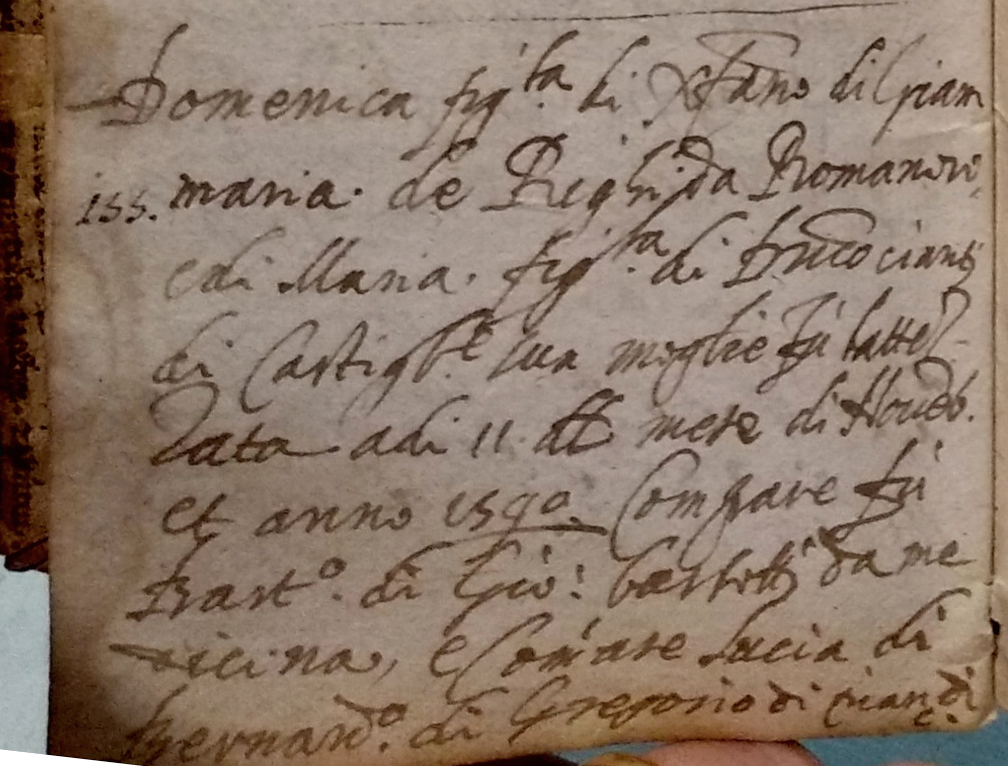 Domenica fig.ta di Xpfano di Giam
155. maria. de Righi da Romanori
e di Maria. fig.ta di franco cianti
di Castigl.e sua moglie fù batte
zata adi 11. del mese di Noueb.
et anno 1590. Compare fù
Bart.o di Gio: bertotti da me
dicina, e Comare Lucia di
Bernard.o di Gregorio di